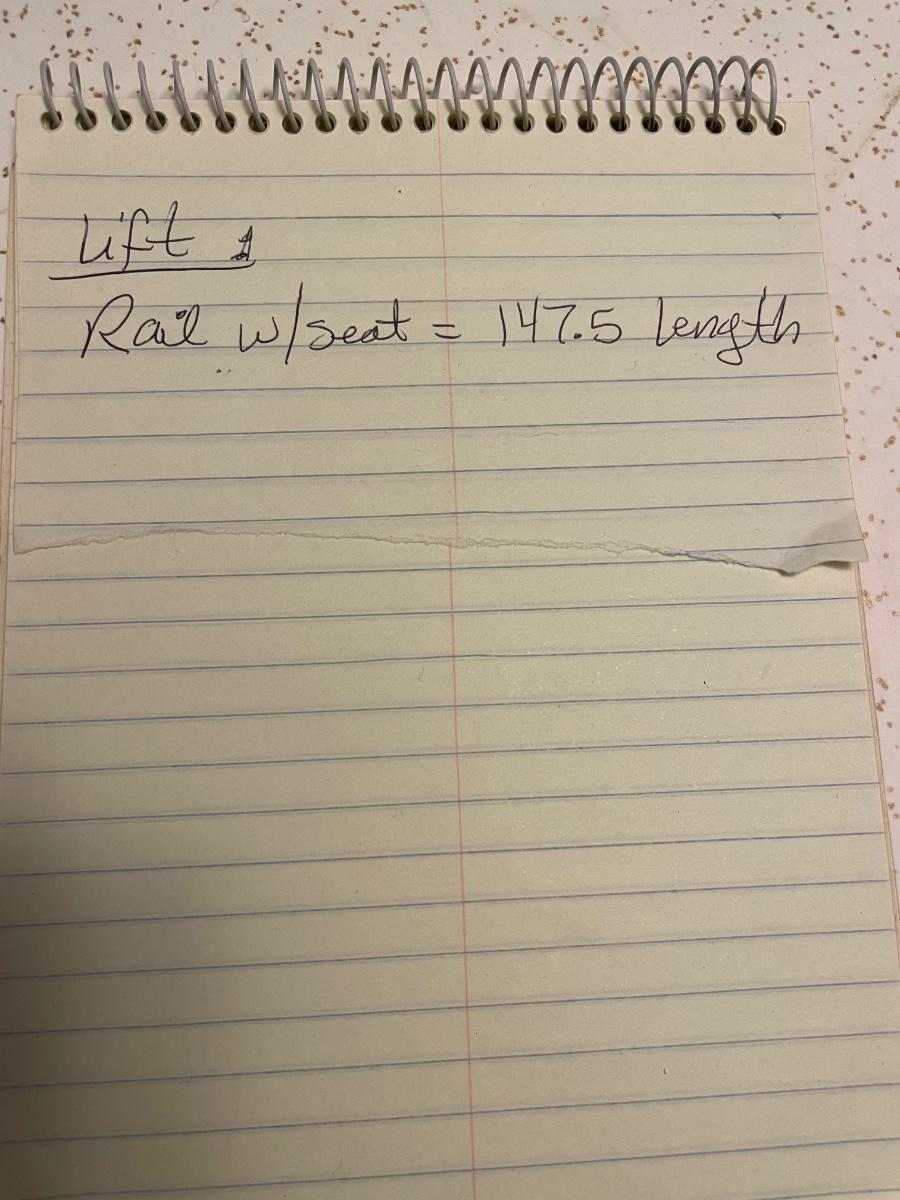 Lift 1
Rail w/seat = 147.5 length